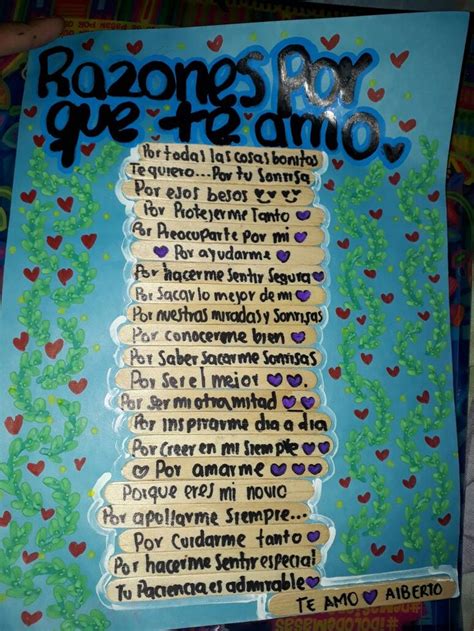 Razones Por
que te amo.
Por todas las cosas bonitas
Te quiero...Por tu Sonrisa
Por esos besos
Por Protejerme Tanto
Por Preocuparte por mi
Por ayudarme
Por hacerme Sentir Segura
Por Sacar lo mejor de mi
Por nuestras miradas y Sonrisas
Por conocerme bien
Por Saber sacarme Sonrisas
Por Ser el mejor
Por ser mi otra mitad
Por inspirarme dia a dia
Por Creer en mi Siempre
Por amarme
Porque eres mi novio
Por apollarme Siempre...
Por Cuidarme tanto
Por hacerme Sentir especial!
Tu Paciencia es admirable
TE AMO AlBERTO